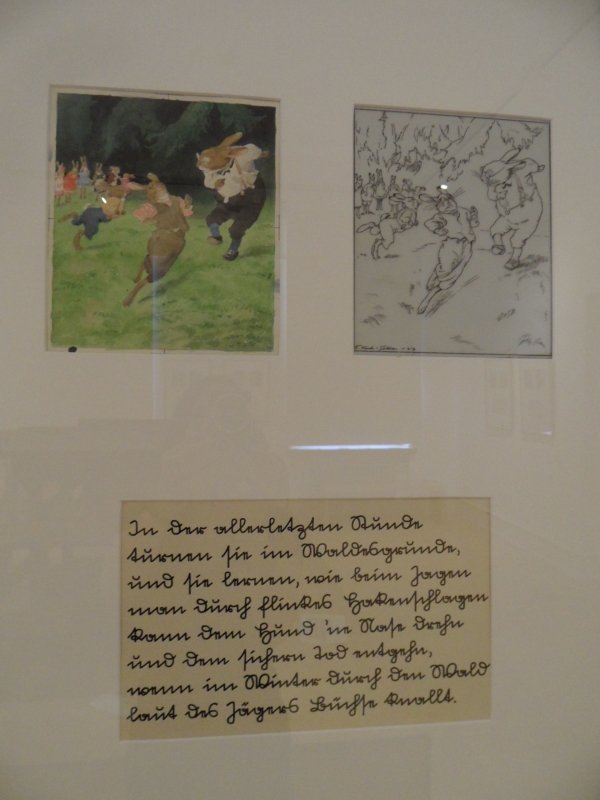 In der allerletzten Stunde
turnen sie im Waldesgrunde,
und sie lernen, wie beim Jagen
man durch flinkes Hakenschlagen
kann dem Hund 'ne Nase drehn
und dem sichern Tod entgehn,
wenn im Winter durch den Wald
laut des Jägers Büchse knallt.